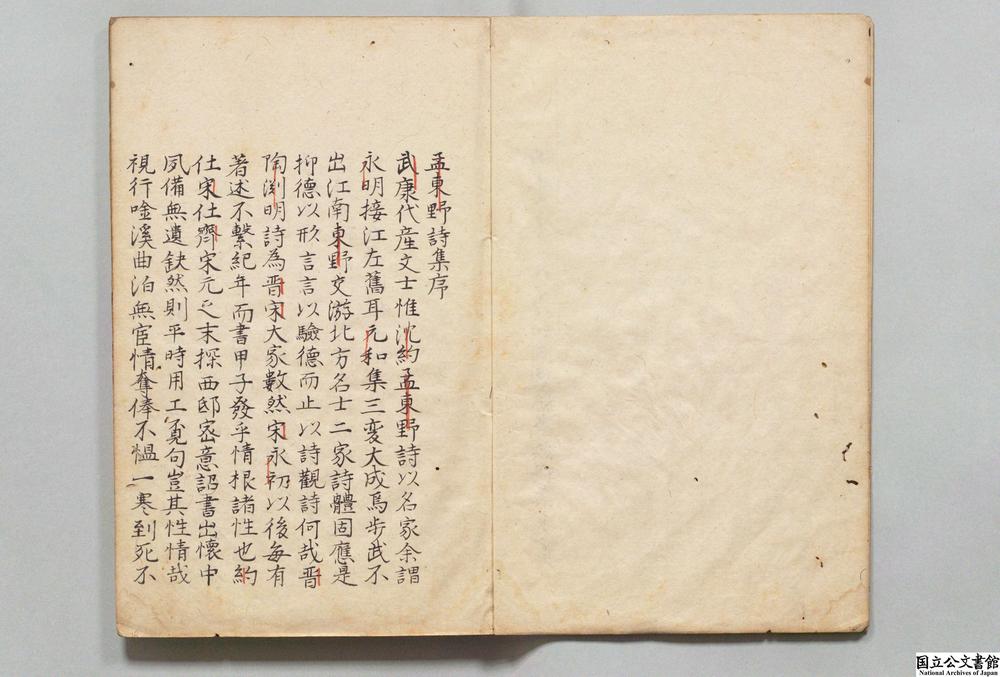 孟東野詩集序
武康代産文士惟沈約孟東野詩以名家余謂
永明接江左舊耳元和集三変大成焉步武不
出江南東野交游北方名士二家詩體固應是
抑德以形言言以驗德而止以詩觀詩何哉晋
陶渕明詩為晋宋大家數然宋永初以後每有
著述不繫紀年而書甲子發乎情根諸性也約
仕宋仕齊宋元之末探西邸密意詔書出懷中
夙備無遺缺然則平時用工覔句豈其性情哉
視行唫溪曲泊無宦情奪俸不愠一寒到死不
国立公文書館
National Archives of Japan